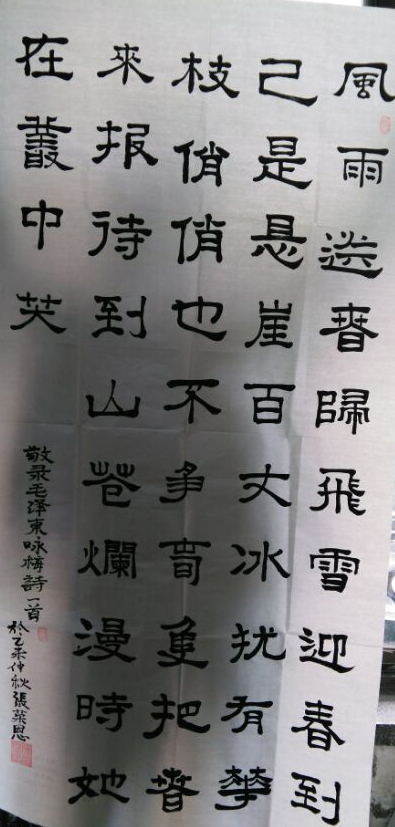 風雨送春歸飛雪迎春到
己是悬崖百丈冰犹有華
枝俏俏也不争春隻把春
來报待到山花爛漫時她
在叢中笑
敬录毛泽東咏梅詩一首
於乙未仲秋張恩